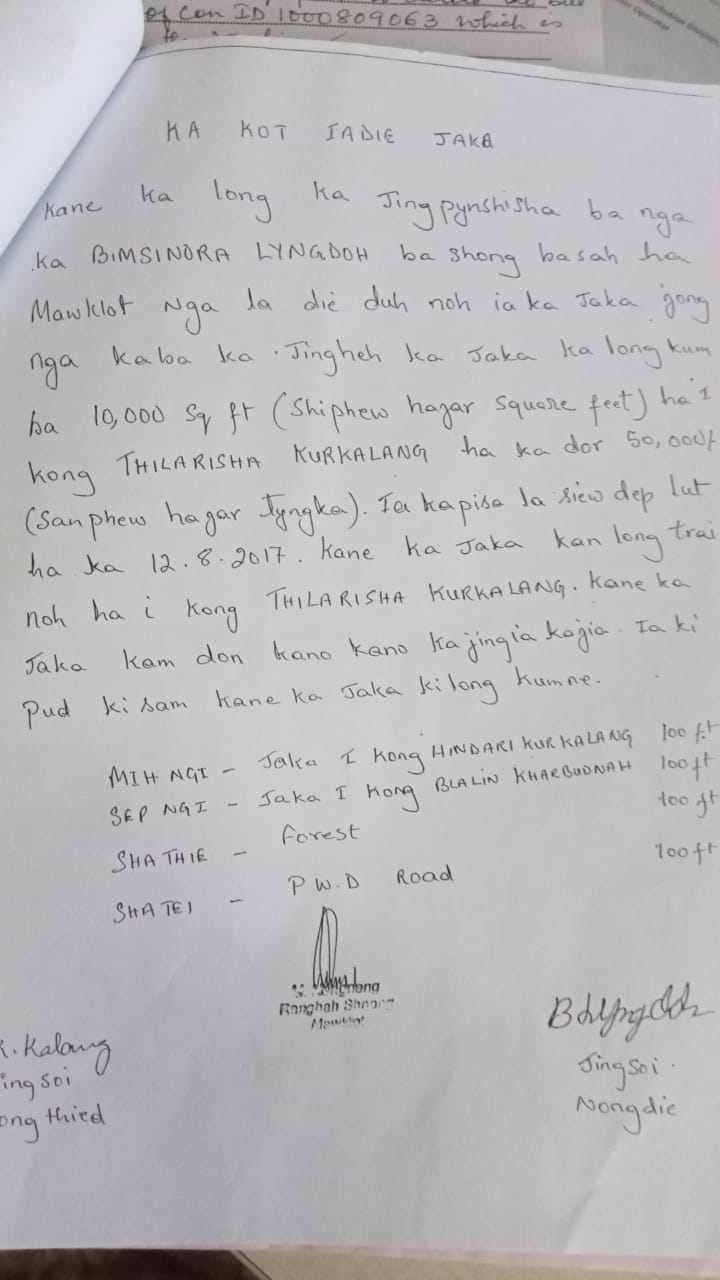 of Con ID 1000809063 which is
KA KOT IADIE JAKA
Kane ka long ka Jingpynshisha ba nga
ka BIMSINDRA LYNGDOH ba shong basah ha
Mawklot Nga la die duh noh ia ka Jaka jong
nga kaba ka Jingheh ka Jaka ka long kum
ba 10,000 Sq ft (Shiphew hajar Square feet) ha i
kong THILARISHA KURKALANG ha ka dor 50,000/
(Sanphew hajar Tyngka). Ia kapisa la siew dep lut
ha ka 12.8.2017. Kane ka Jaka kan long trai
noh ha i kong THILARISHA KURKALANG. Kane ka
Jaka kam don kano kano kajingia kajia. Ia ki
Pud ki sam kane ka Jaka ki long kumne.
MIH NGI - Jaka I Kong HINDARI KURKALANG 100 ft
SEP NGI - Jaka I Kong BLALIN KHARBUDNAH 100 ft
SHATHIE - Forest 100 ft
SHATEI - P.W.D Road 100 ft
Rangbah Shnong
Mawklot
Kalang
ing soi
ong thied
Jingsoi
Nongdie